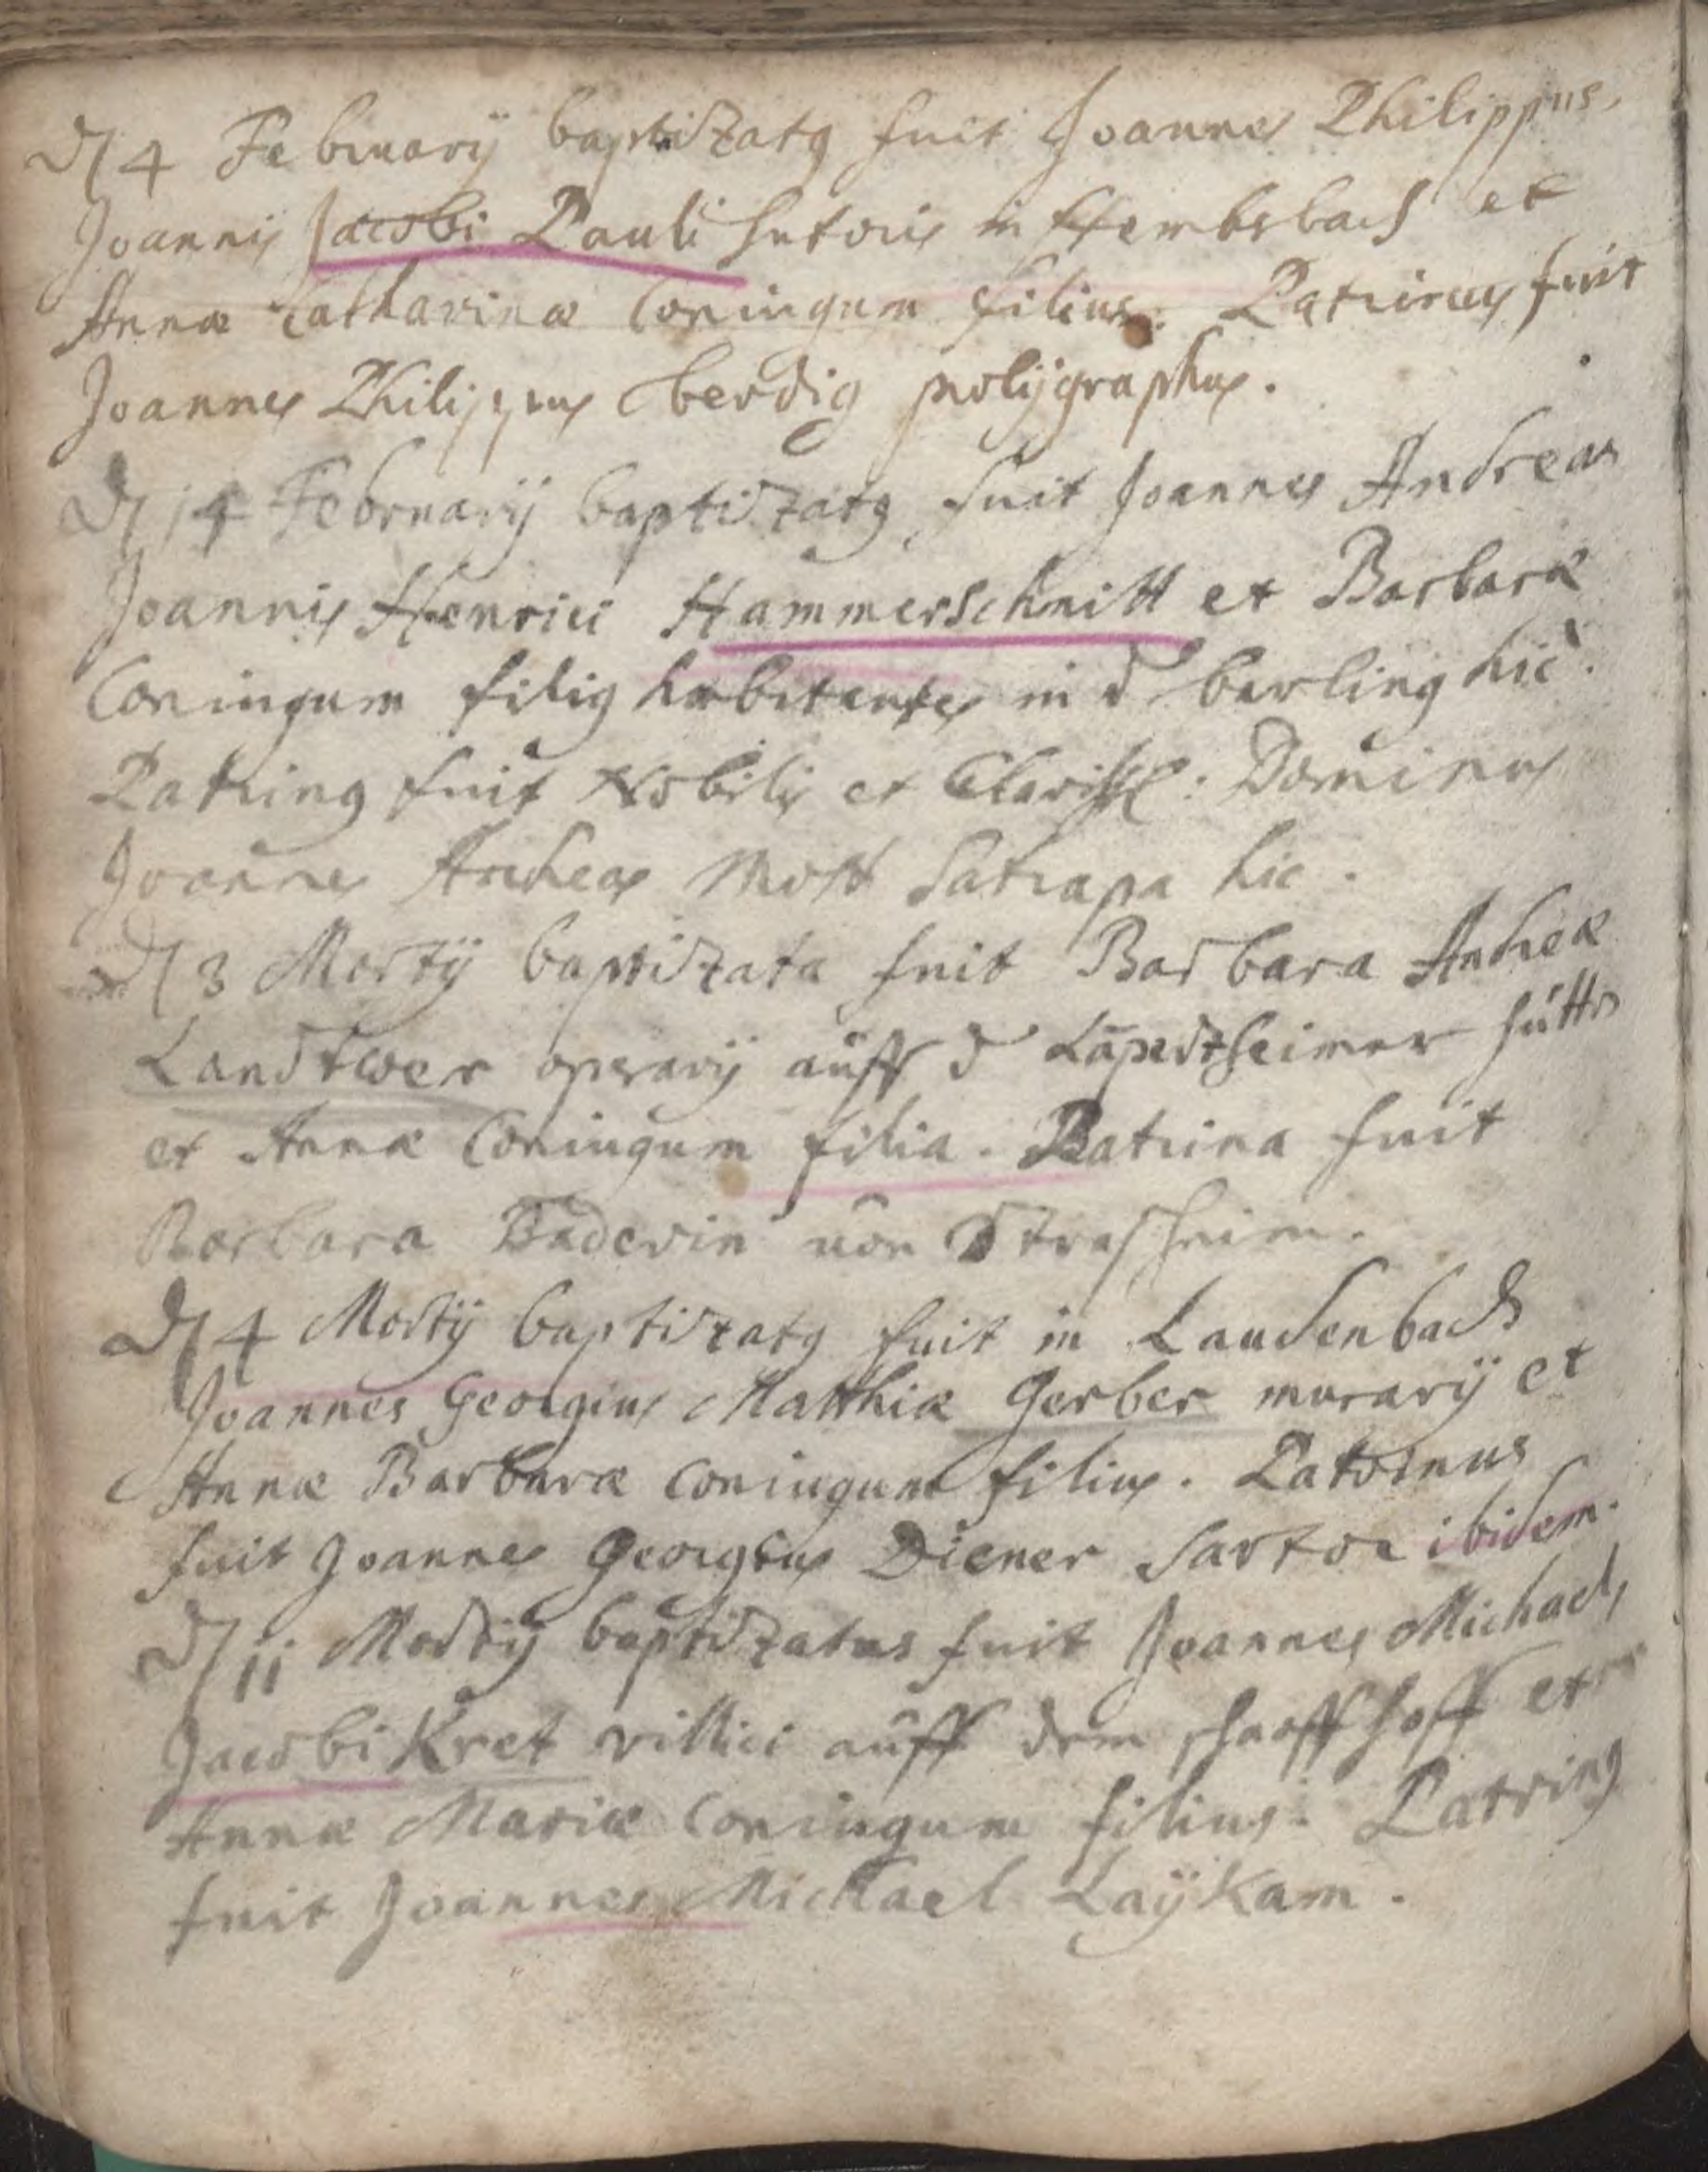 D 4 Februarij baptizatq fuit Joannes Philippus,
Joannis Jacobi Pauli sutoris in Hembsbach et
Annæ Catharinæ Coniugum filius. Patrinus fuit
Joannes Philippus Oberdig polijgraphus.
D 14 Februarij baptizatq fuit Joannes Andreas
Joannis Henrici Hammerschmitt et Barbaræ
Coniugum filiq habitantes in d berling hic.
Patrinq fuit Nobilis et Clariss: Dominus
Joannes Andreas Mott Satrapa hic.
D 3 Martij baptizata fuit Barbara Andreæ
Landtwer operarij auff d Lapedtheimer hütt
et Annæ Coniugum filia. Patrina fuit
Barbara Baderin von Strasheim.
D 4 Martij baptizatq fuit in Laudenbach
Joannes Georgius Matthiæ Gerber murarij et
Annæ Barbaræ Coniugum filius. Patrinus
fuit Joannes Georgius Diener Sartor ibidem.
D 11 Martij baptizatus fuit Joannes Michael,
Jacobi Kret villici auff dem schaaffhoff et
Annæ Mariæ Coniugum filius. Patrinq
fuit Joannes Michael Laÿkam.